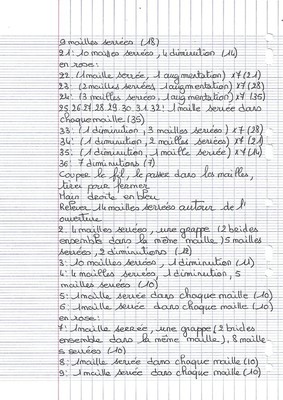 9 mailles serrées (18)
21: 10 mailles serrées, 4 diminution (14)
en rose:
22: (1 maille serrée, 1 augmentation) x7 (21)
23: (2 mailles serrées, 1 augmentation) x7 (28)
24: (3 mailles serrées, 1 augmentation) x7 (35)
25.26.27.28.29.30.31.32: 1 maille serrée dans
chaque maille (35)
33: (1 diminution, 3 mailles serrées) x7 (28)
34: (1 diminution, 2 mailles serrées) x7 (21)
35: (1 diminution, 1 maille serrée) x7 (14)
36: 7 diminutions (7)
Couper le fil, le passer dans la mailles,
tirer pour fermer
Main droite en bleu
Relever 14 mailles serrées autour de l'
ouverture
2: 4 mailles serrées, une grappe (2 brides
ensemble dans la même maille) 5 mailles
serrées, 2 diminutions (12)
3: 10 mailles serrées, 1 diminution (11)
4: 4 mailles serrées, 1 diminution, 5
mailles serrées (10)
5: 1 maille serrée dans chaque maille (10)
6: 1 maille serrée dans chaque maille (10)
en rose:
7: 1 maille serrée, une grappe (2 brides
ensemble dans la même maille), 8 mailles
serrées (10)
8: 1 maille serrée dans chaque maille (10)
9: 1 maille serrée dans chaque maille (10)